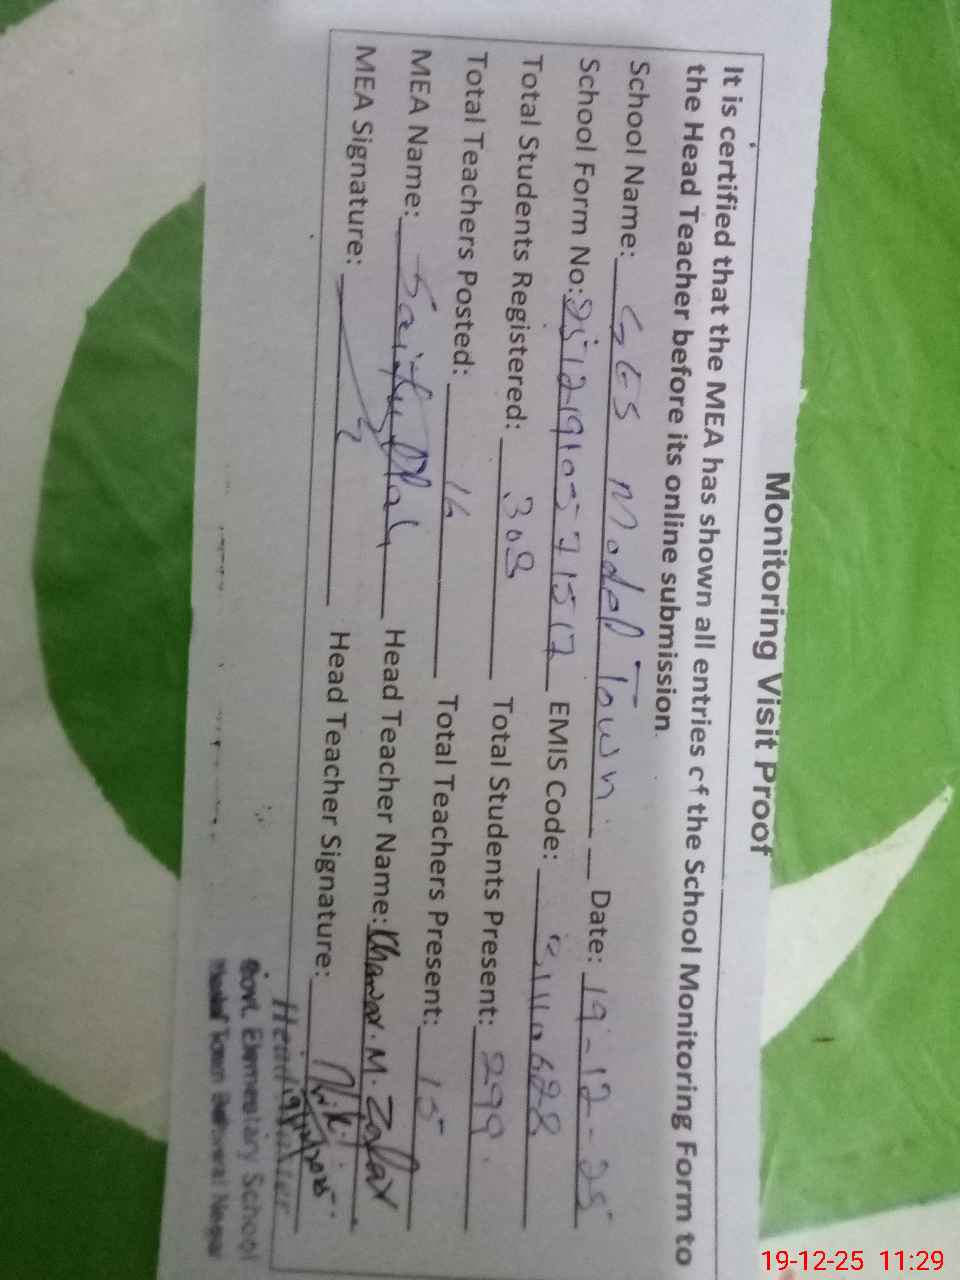 Monitoring Visit Proof
It is certified that the MEA has shown all entries of the School Monitoring Form to
the Head Teacher before its online submission.
School Name: GES Model Town Date: 19-12-25
School Form No: 25121910571517 EMIS Code: 31110628
Total Students Registered: 308 Total Students Present: 299
Total Teachers Posted: 16 Total Teachers Present: 15
MEA Name: Saifullah Head Teacher Name: Khawar. M. Zafar
MEA Signature: Head Teacher Signature:
Head
Govt. Elementary School
Model Town
19-12-25 11:29